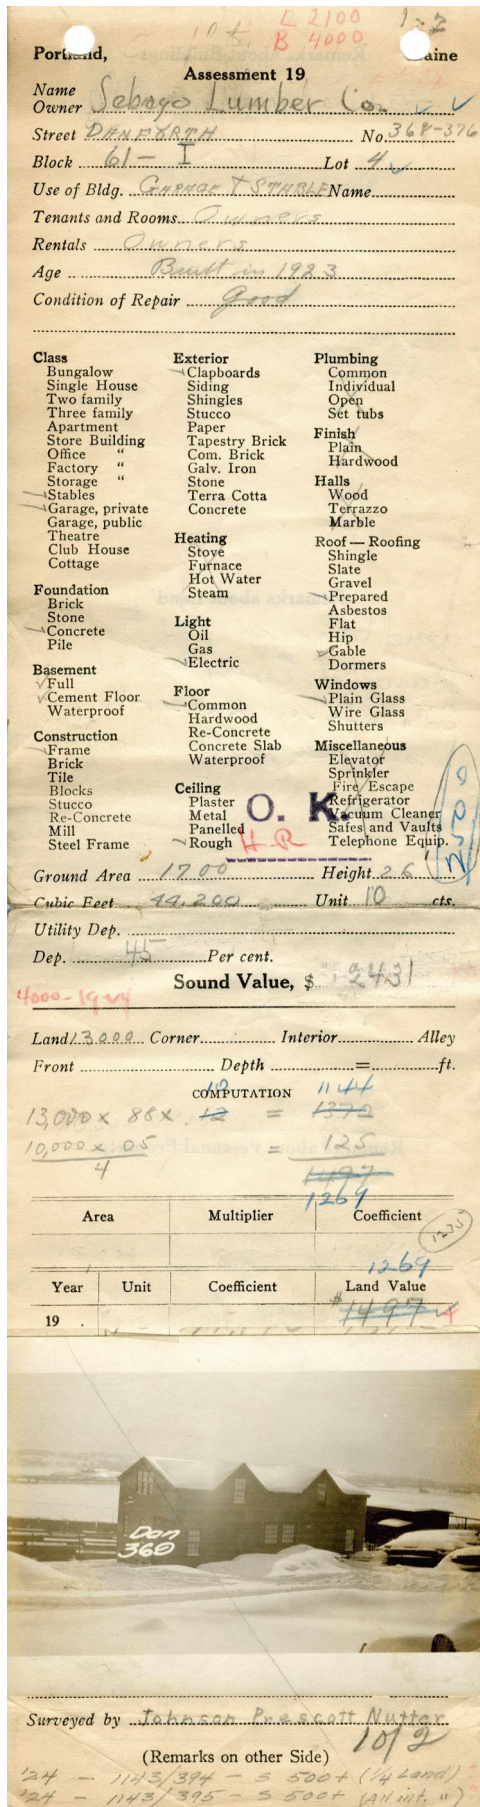 L 2100
B 4000
1 = 2
Portland, Maine
Assessment 19
Name
Owner Sebago Lumber Co.
Street DANFORTH No. 368-376
Block 61- I Lot 4
Use of Bldg. GARAGE & STABLE Name
Tenants and Rooms Owners
Rentals Owners
Age Built in 1923
Condition of Repair Good
Class
Bungalow
Single House
Two family
Three family
Apartment
Store Building
Office "
Factory "
Storage "
Stables
Garage, private
Garage, public
Theatre
Club House
Cottage
Foundation
Brick
Stone
Concrete
Pile
Basement
Full
Cement Floor
Waterproof
Construction
Frame
Brick
Tile
Blocks
Stucco
Re-Concrete
Mill
Steel Frame
Exterior
Clapboards
Siding
Shingles
Stucco
Paper
Tapestry Brick
Com. Brick
Galv. Iron
Stone
Terra Cotta
Concrete
Heating
Stove
Furnace
Hot Water
Steam
Light
Oil
Gas
Electric
Floor
Common
Hardwood
Re-Concrete
Concrete Slab
Waterproof
Ceiling
Plaster
Metal
Panelled
Rough
Plumbing
Common
Individual
Open
Set tubs
Finish
Plain
Hardwood
Halls
Wood
Terrazzo
Marble
Roof — Roofing
Shingle
Slate
Gravel
Prepared
Asbestos
Flat
Hip
Gable
Dormers
Windows
Plain Glass
Wire Glass
Shutters
Miscellaneous
Elevator
Sprinkler
Fire Escape
Refrigerator
Vacuum Cleaner
Safes and Vaults
Telephone Equip.
O. K.
H R
2500
Ground Area 1700 Height 26
Cubic Feet 44.200 Unit 10 cts.
Utility Dep.
Dep. 45 Per cent.
Sound Value, $ 2431
4000-1924
Land 13000 Corner Interior Alley
Front Depth = ft.
COMPUTATION
10 1144
13,000 x 88 x .12 = 1372
10,000 x 05 = 125
4 1497
1269
Area Multiplier Coefficient
1275
1269
Year Unit Coefficient Land Value
19 . $1497
Dan
360
Surveyed by Johnson Prescott Nutter
1 of 2
(Remarks on other Side)
'24 - 1143/394 - S 500+ (1/4 Land)
'24 - 1143/395 - S 500+ (All int. ")